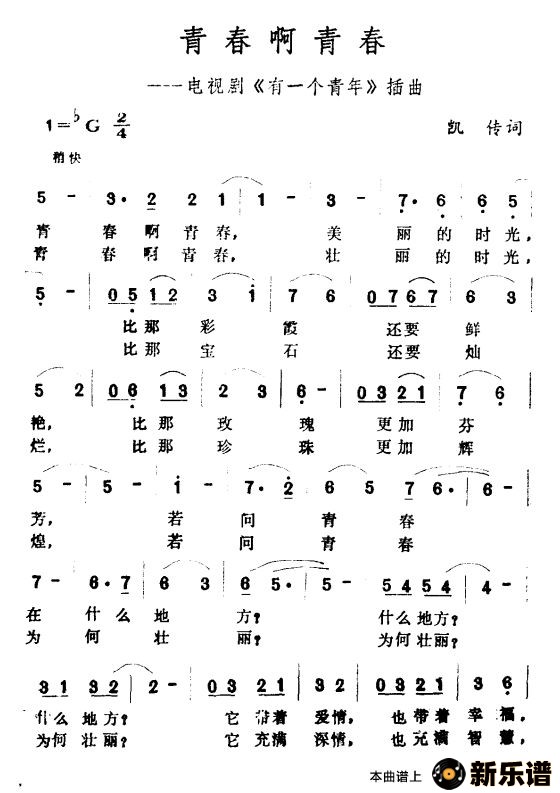 青春啊青春
----电视剧《有一个青年》插曲
1=♭G 2/4 凯 传词
稍快
5 - | 3· 2 | 2 1 | 1 - | 3 - | 7· 6 | 6 5 |
青 春啊青春, 美 丽的时光,
青 春啊青春, 壮 丽的时光,
5 - | 05 12 | 3 i | 7 6 | 076 7 | 6 3 |
比那 彩 霞 还要 鲜
比那 宝 石 还要 灿
5 2 | 06 13 | 2 3 | 6 - | 03 21 | 7 6 |
艳, 比那 玫 瑰 更加 芬
烂, 比那 珍 珠 更加 辉
5 - | 5 - | i - | 7· 2 | 6 5 | 7 6· | 6 -
芳, 若 问 青 春
煌, 若 问 青 春
7 - | 6· 7 | 6 3 | 6 5· | 5 - | 54 54 | 4 -
在 什么 地 方? 什么地方?
为 何 壮 丽? 为何壮丽?
31 32 | 2 - | 03 21 | 3 5 | 03 21 | 3 6 |
什么 地方? 它 带着 爱情, 也带着 幸福,
为何 壮丽? 它 充满 深情, 也充满 智慧,
本曲谱上 新乐谱